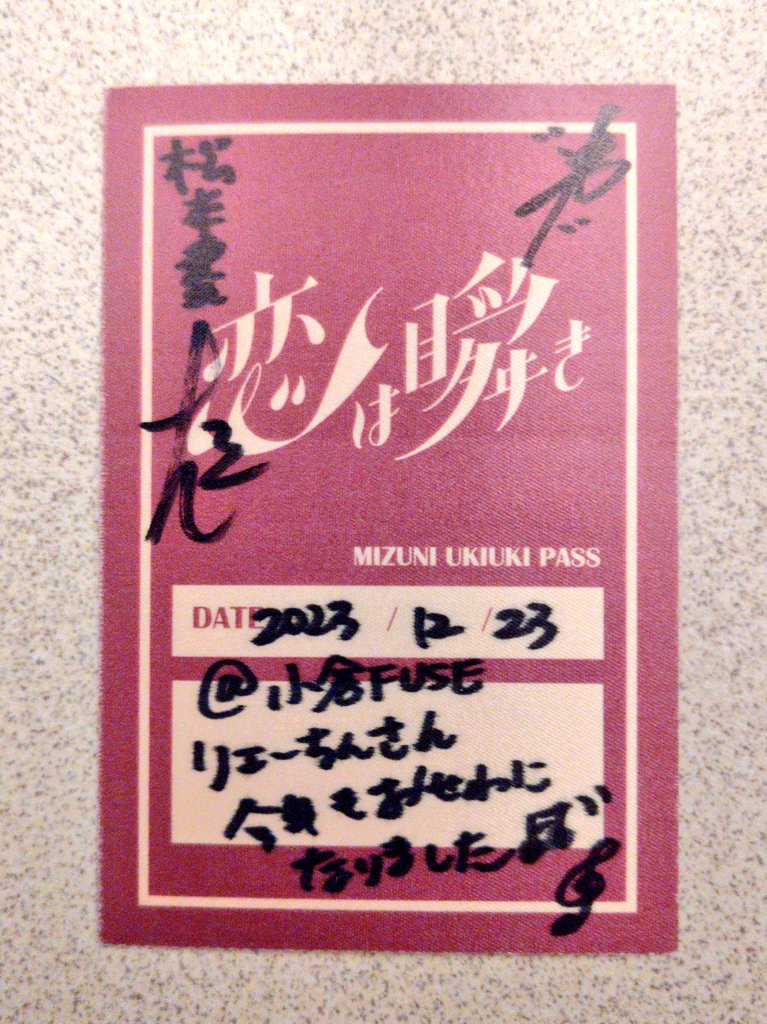 恋は瞬き
MIZUNI UKIUKI PASS
DATE 2023 / 12 / 23
@小倉FUSE
りエーちんさん
今年もおせわに
なりました